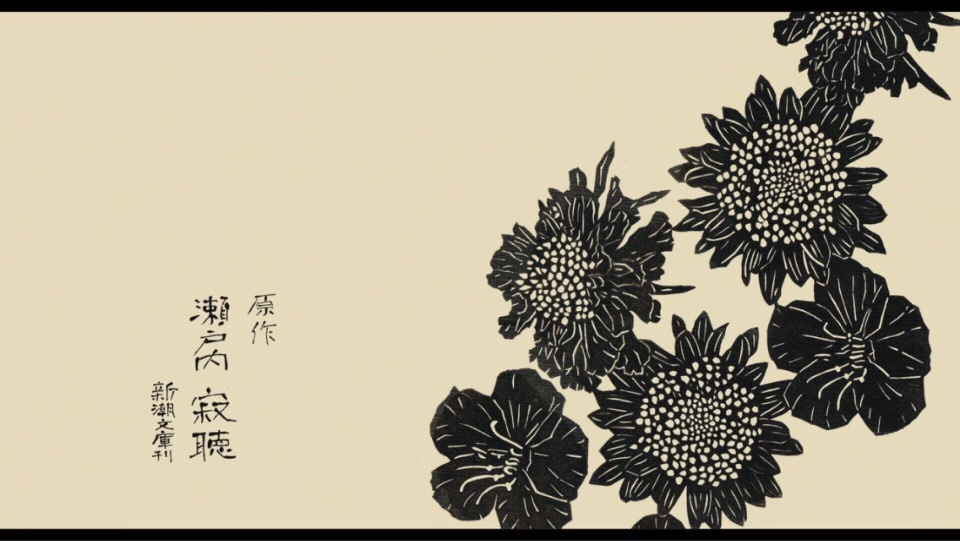 原作
瀬戸内 寂聴
新潮文庫刊